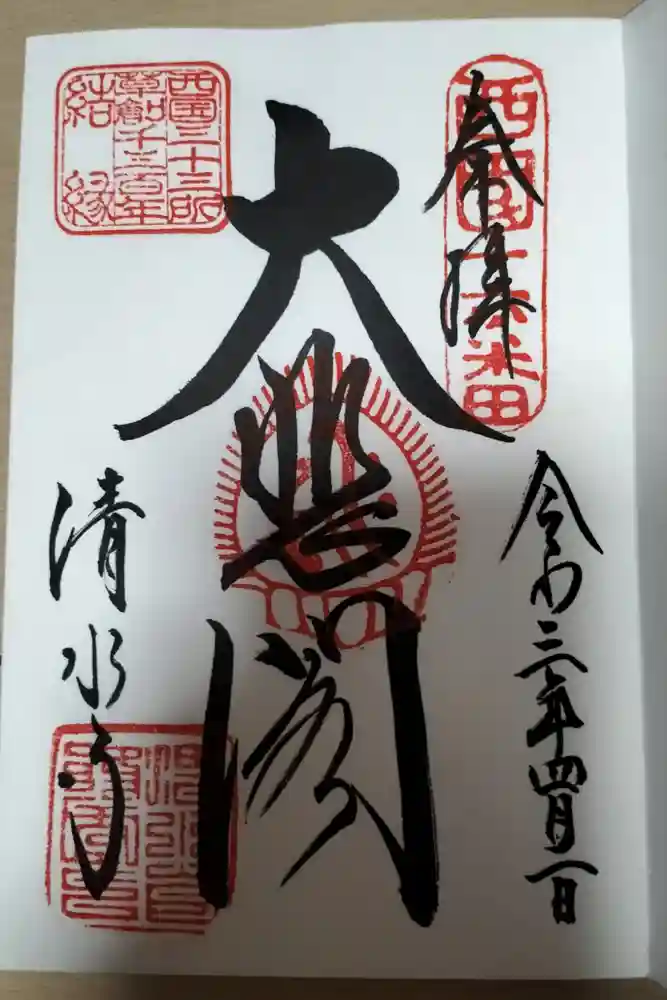 西国十六番
奉拝
令和三年四月一日
大悲閣
西国三十三所
草創千三百年
結縁
清水寺